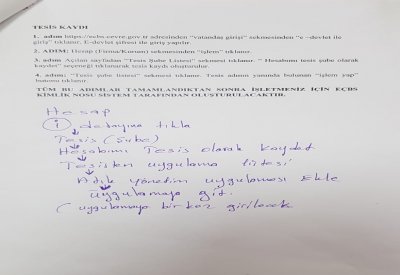 TESİS KAYDI
1. adım https://ecbs.cevre.gov.tr adresinden "vatandaş girişi" sekmesinden "e –devlet ile
giriş" tıklanır. E-devlet şifresi ile giriş yapılır.
2. ADIM: Hesap (Firma/Kurum) sekmesinden "işlem" tıklanır.
3. adım Açılan sayfadan "Tesis Şube Listesi" sekmesi tıklanır. " Hesabımı tesis şube olarak
kaydet" seçeneği tıklanarak tesis kaydı oluşturulur.
4. adım: "Tesis şube listesi" sekmesi tıklanır. Tesis adının yanında bulunan "işlem yap"
butonu tıklanır.
TÜM BU ADIMLAR TAMAMLANDIKTAN SONRA İŞLETMENİZ İÇİN EÇBS
KİMLİK NOSU SİSTEM TARAFINDAN OLUŞTURULACAKTIR.
Hesap
i detayına tıkla
Tesis (Şube)
Hesabımı Tesis olarak kaydet
Tesisten uygulama listesi
Atık yönetim uygulaması Ekle
uygulamaya git.
( uygulamaya bir kez girilecek